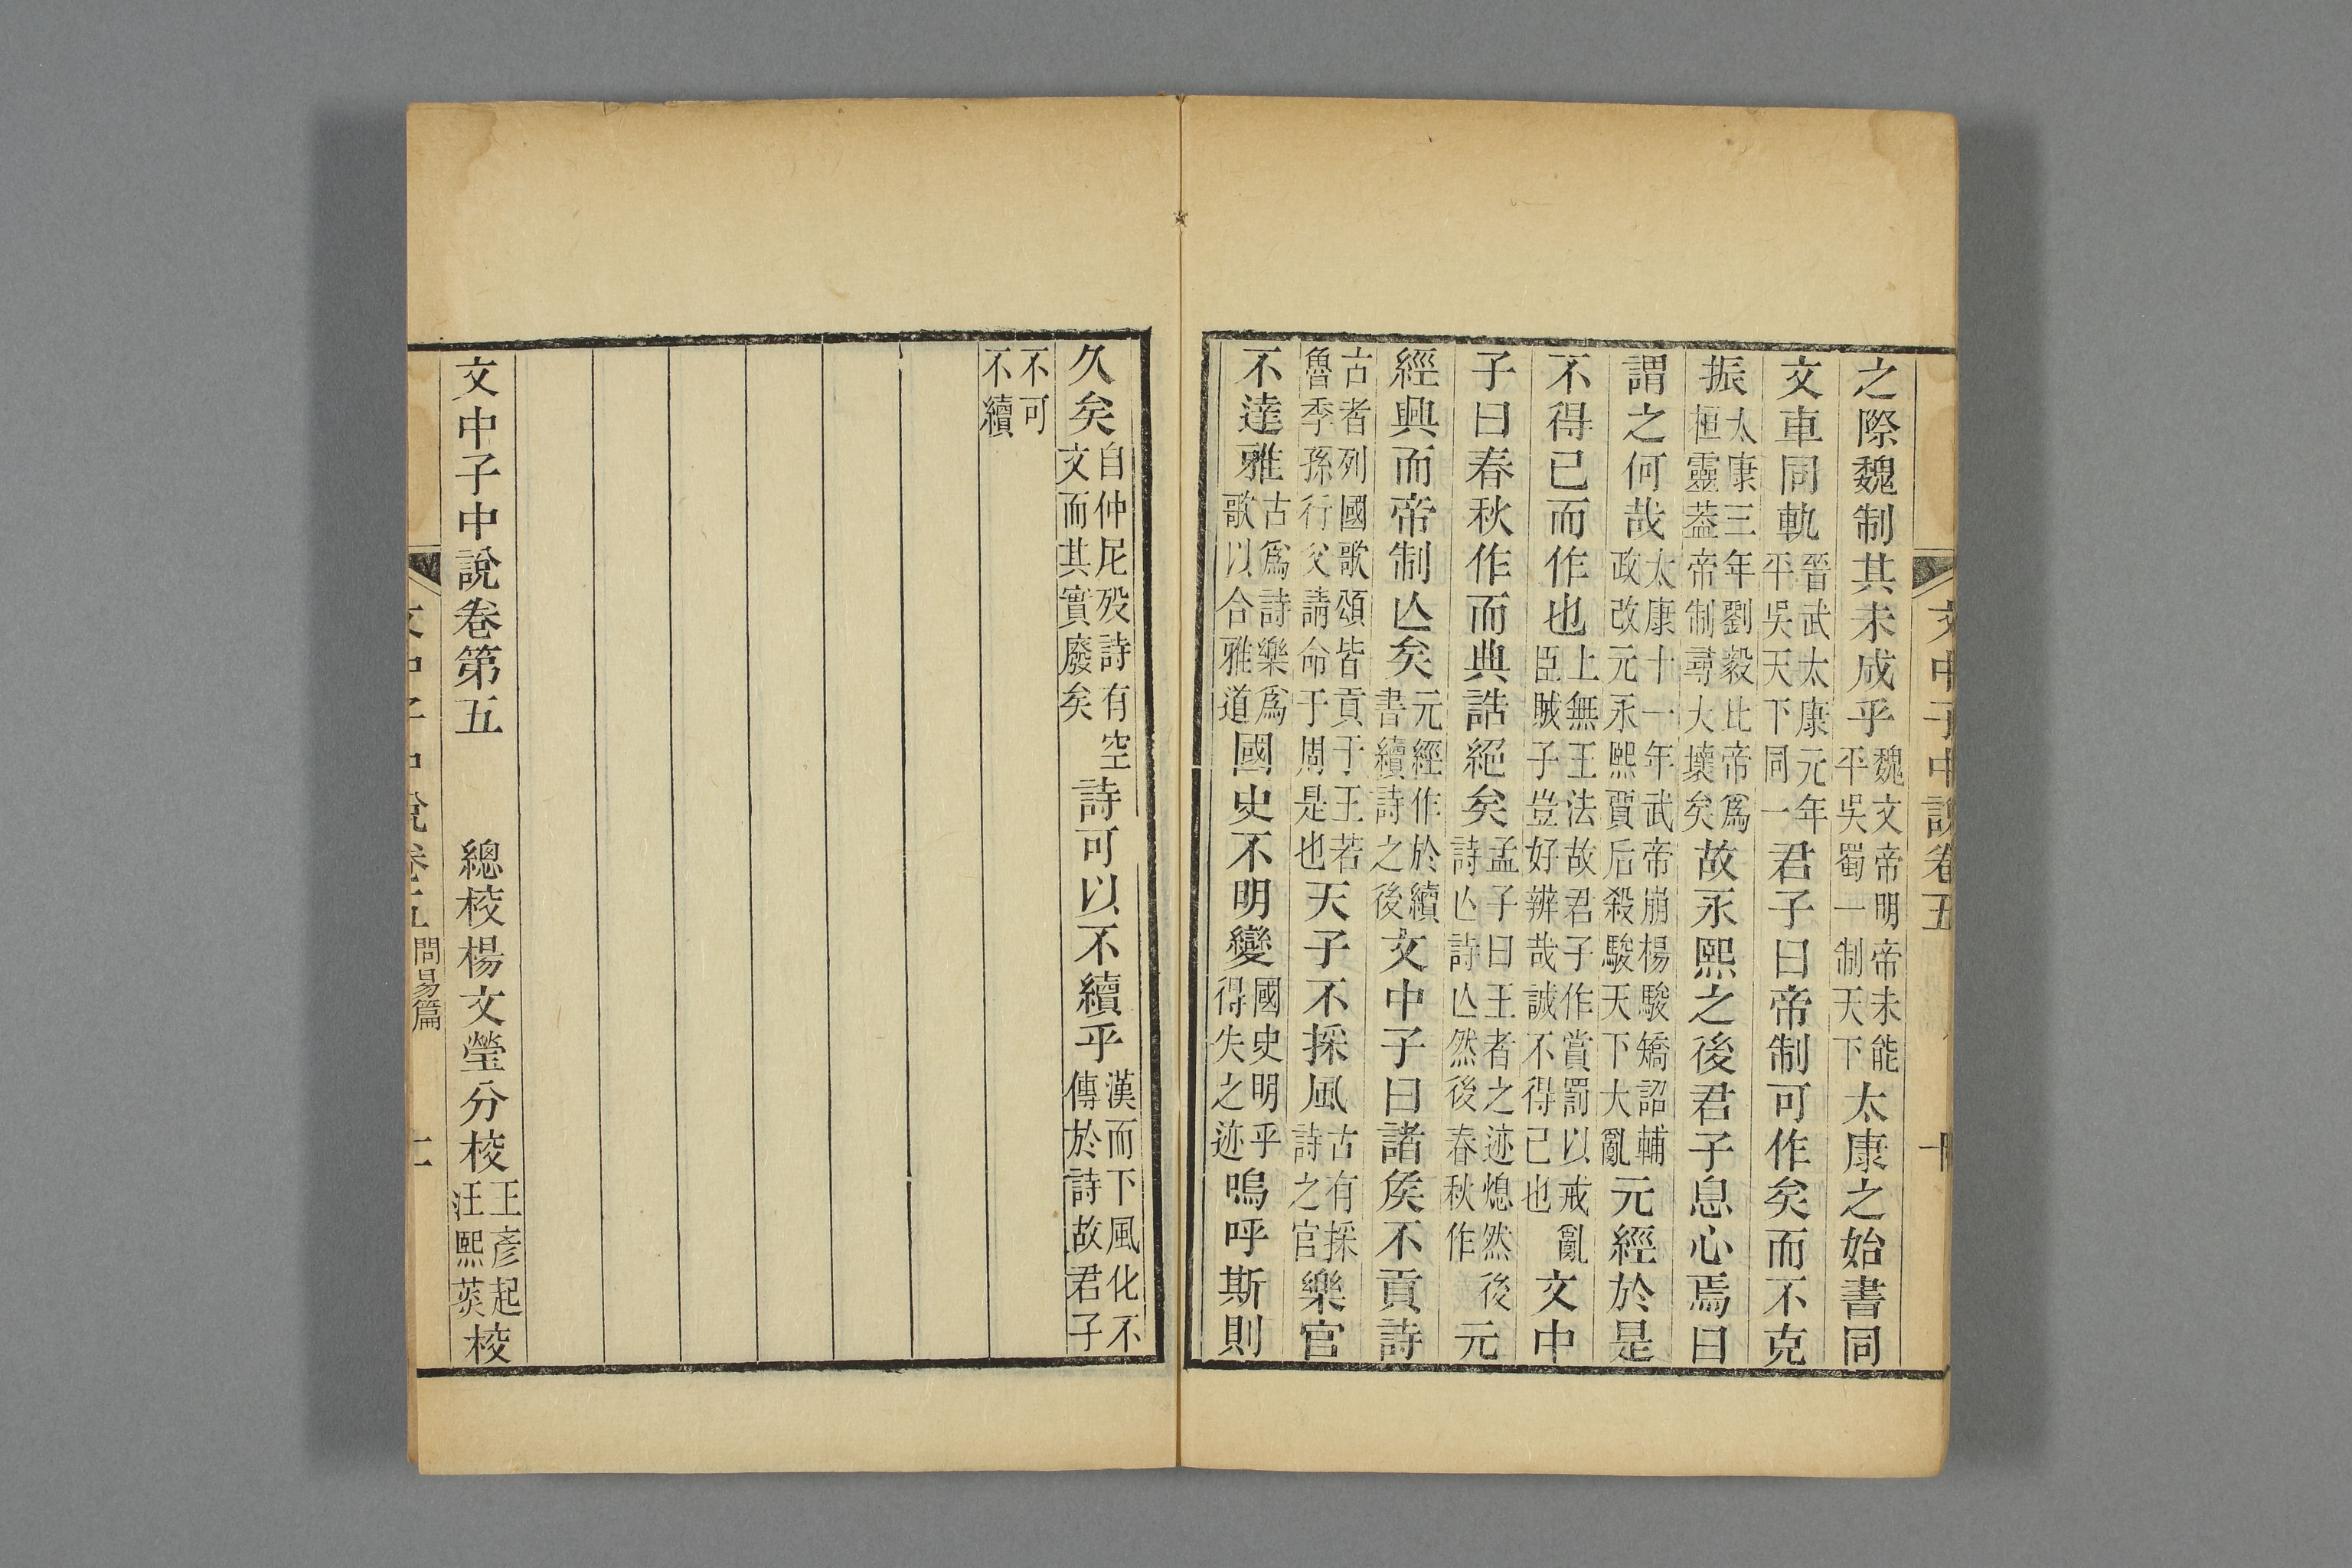 文中子中說卷五　十
之際魏制其未成乎魏文帝明帝未能平吳蜀一制天下太康之始書同
文車同軌晉武太康元年平吳天下同一君子曰帝制可作矣而不克
振太康三年劉毅比帝爲桓靈葢帝制尋大壞矣故永熙之後君子息心焉曰
謂之何哉太康十一年武帝崩楊駿矯詔輔政改元永熙賈后殺駿天下大亂元經於是
不得已而作也上無王法故君子作賞罰以戒亂臣賊子豈好辨哉誠不得已也文中
子曰春秋作而典誥絕矣孟子曰王者之迹熄然後詩亾詩亾然後春秋作元
經興而帝制亾矣元經作於續書續詩之後文中子曰諸矦不貢詩
古者列國歌頌皆貢于王若魯季孫行父請命于周是也天子不採風古有採詩之官樂官
不達雅古爲詩樂爲歌以合雅道國史不明變國史明乎得失之迹嗚呼斯則
久矣自仲尼歿詩有空文而其實廢矣詩可以不續乎漢而下風化不傳於詩故君子
不可不續
文中子中說卷第五　總校楊文瑩分校王彥起汪熙校
文中子中說卷五　問易篇